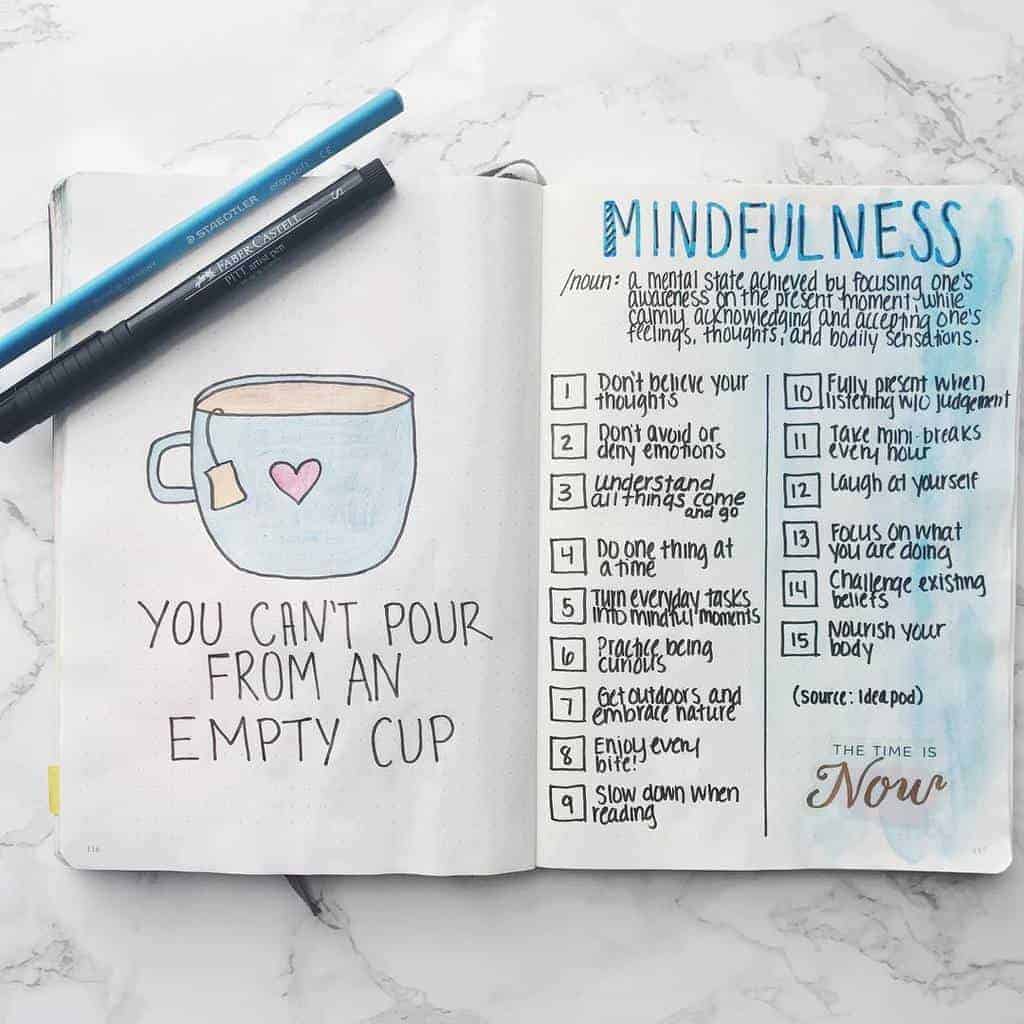 STAEDTLER ergosoft CE
FABER-CASTELL S
PITT artist pen
YOU CAN'T POUR
FROM AN
EMPTY CUP
116
MINDFULNESS
/noun: a mental state achieved by focusing one's
awareness on the present moment, while
calmly acknowledging and accepting one's
feelings, thoughts, and bodily sensations.
1 Don't believe your
thoughts
2 Don't avoid or
deny emotions
3 understand
all things come
and go
4 Do one thing at
a time
5 Turn everyday tasks
into mindful moments
6 Practice being
curious
7 Get outdoors and
embrace nature
8 Enjoy every
bite!
9 Slow down when
reading
10 Fully present when
listening w/o judgement
11 Take mini-breaks
every hour
12 Laugh at yourself
13 Focus on what
you are doing
14 Challenge existing
beliefs
15 Nourish your
body
(source: Ideapod)
THE TIME IS
Now